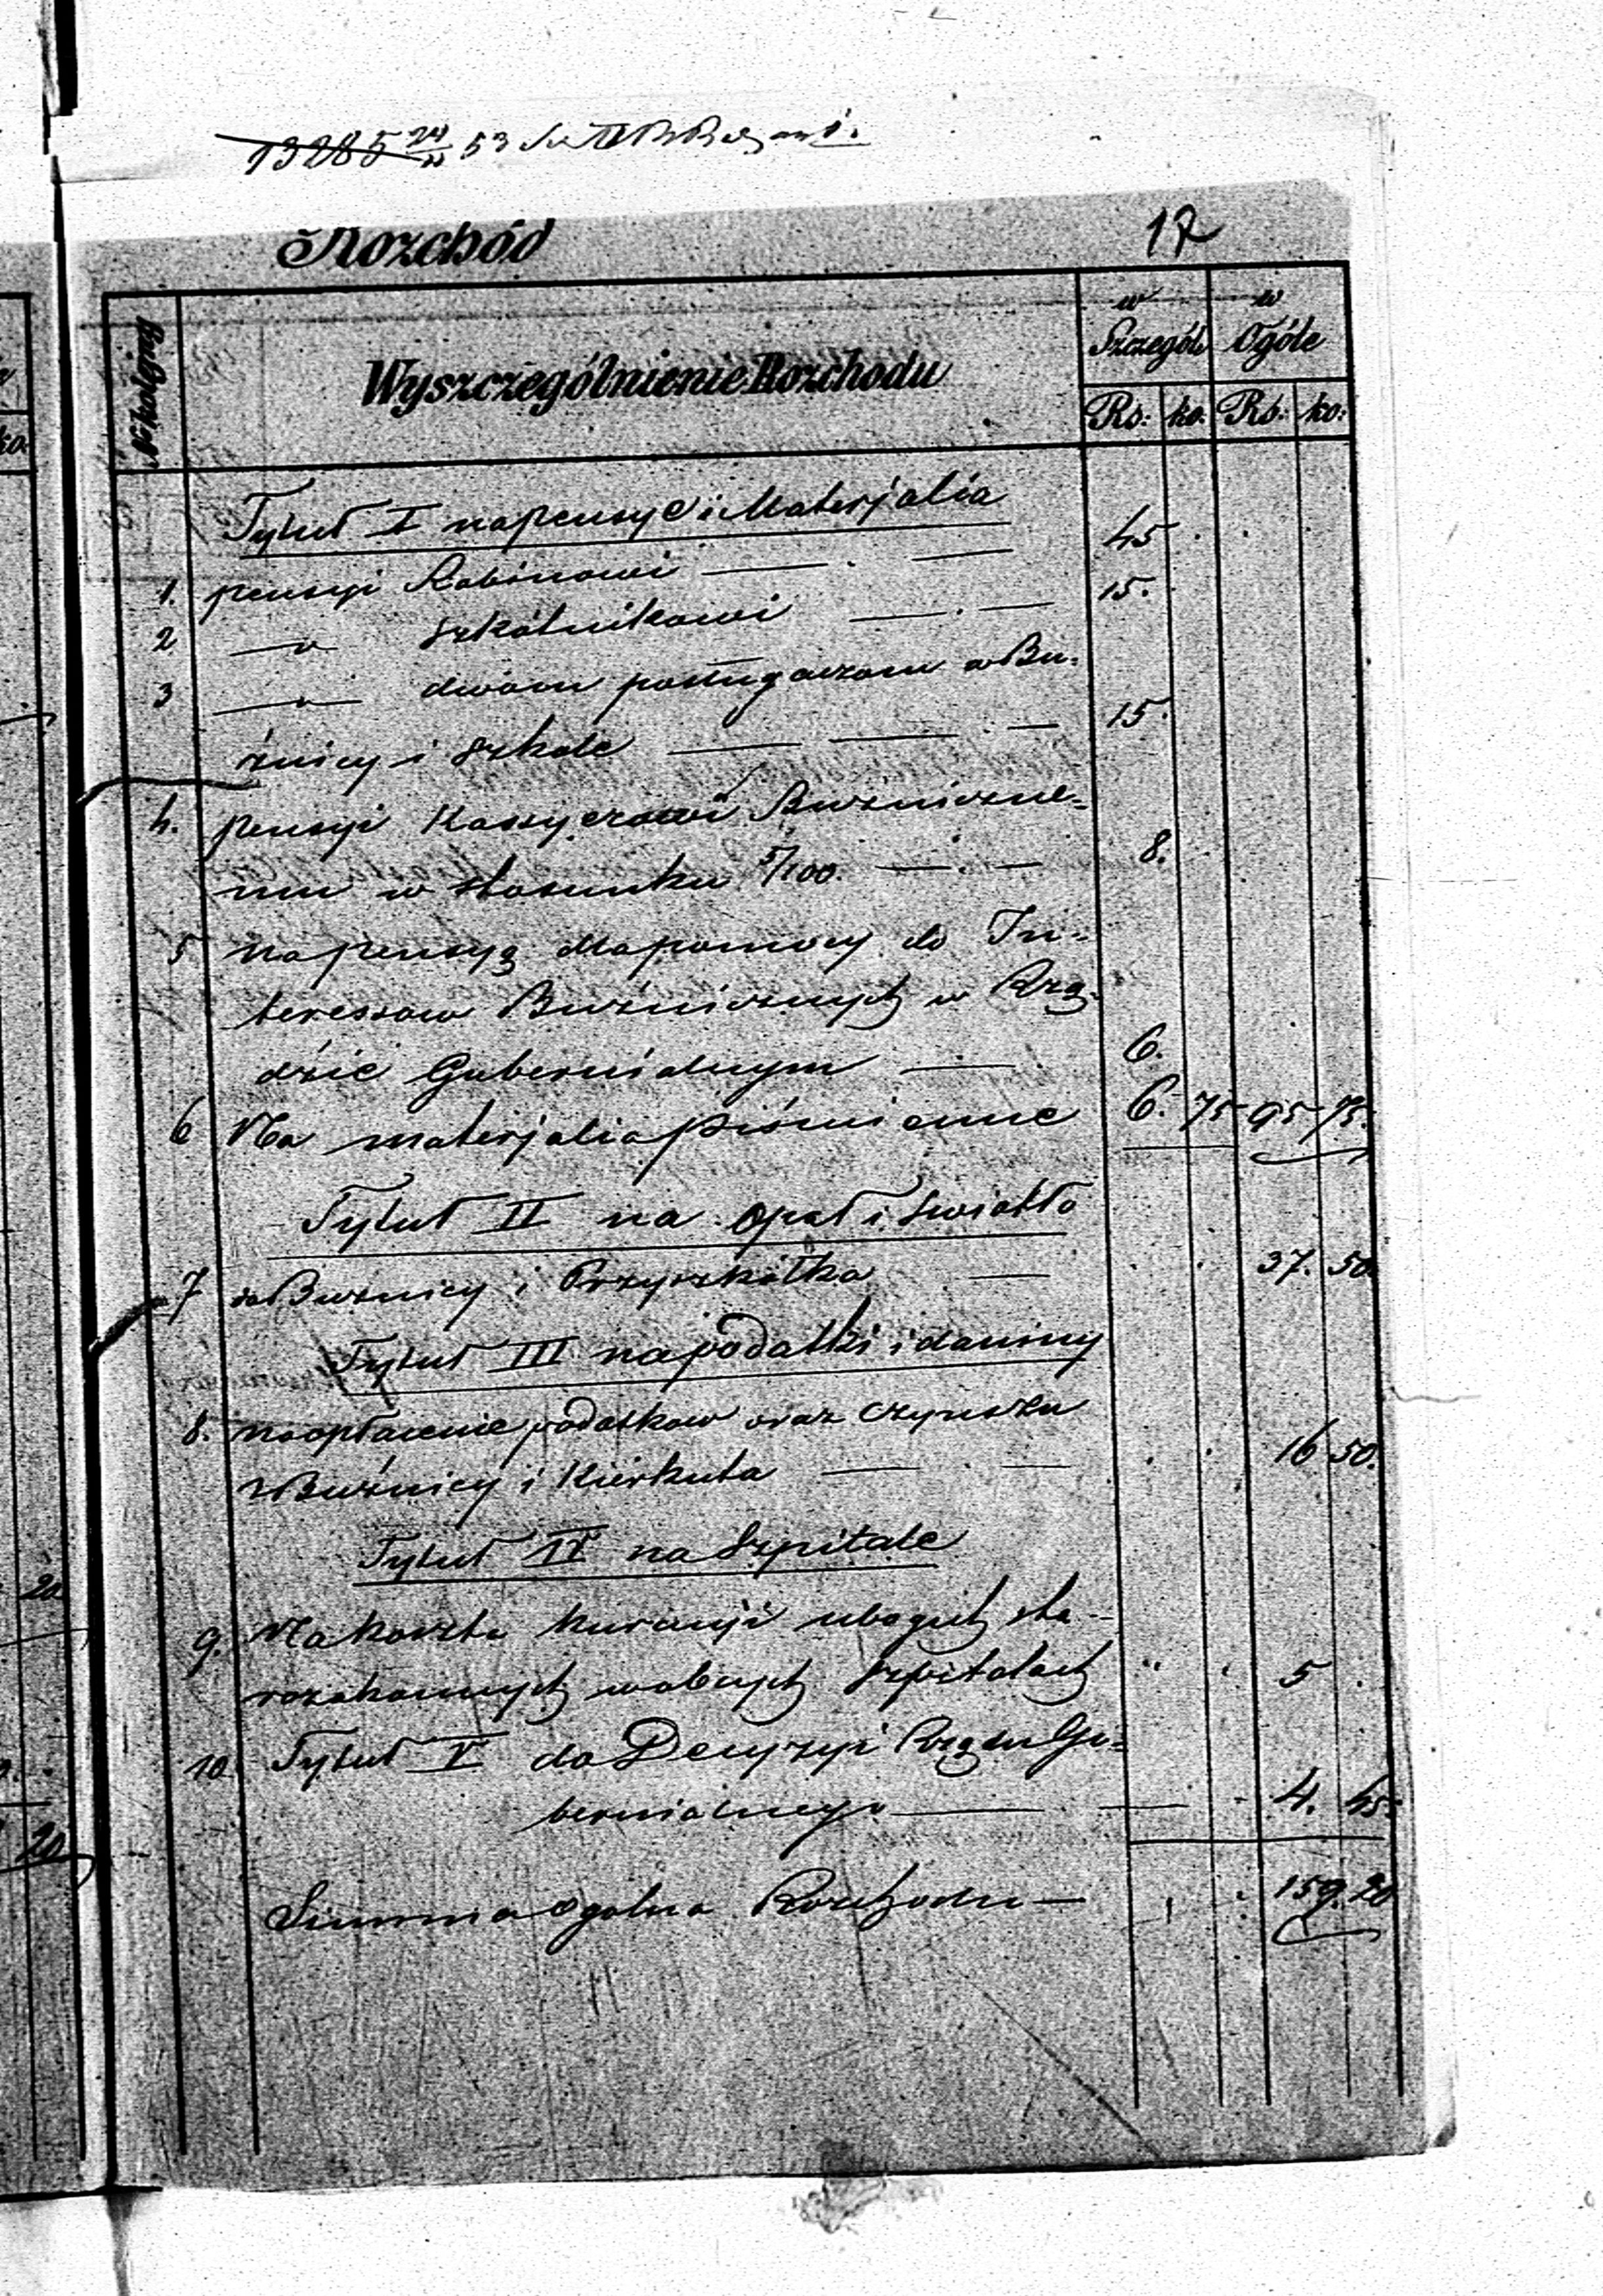 13285 24/11 53
Rozchód
17
N: kolejny
Wyszczególnienie Rozchodu
w Szczególe
w Ogóle
Rs: ko: Rs: ko:
Tytuł I na pensye i Materjalia
1. pensyi Rabinowi — . — 45 . .
2 — „ szkólnikowi — . — 15.
3 — „ — dwóm posługaczom w Bu-
źnicy i szkole — — . — 15.
4. pensyi Kassyerowi Buźniczne-
mu w stosunku 5/100. — . — 8.
5 na pensyą do pomocy do In-
teressow Buźnicznych w Rzą-
dzie Gubernialnym — . — 6.
6 Na materjalia piśmienne 6. 75 95 75.
Tytuł II na opał i swiatło
7 do Buznicy i Przyszkółka — . . 37. 50.
Tytuł III na podatki i daniny
8. na opłacenie podatkow oraz czynszu
z Buźnicy i Kierkuta — . — . . 16 50.
Tytuł IV na Szpitale
9. Na koszta kuracyi ubogich sta-
rozakonnych w obcych szpitalach „ . 5 .
10. Tytuł V do Decyzyi Rządu Gu-
bernialnego — — . 4. 45.
Summa ogolna Rozchodu — . : 159. 20
ko.
20
20